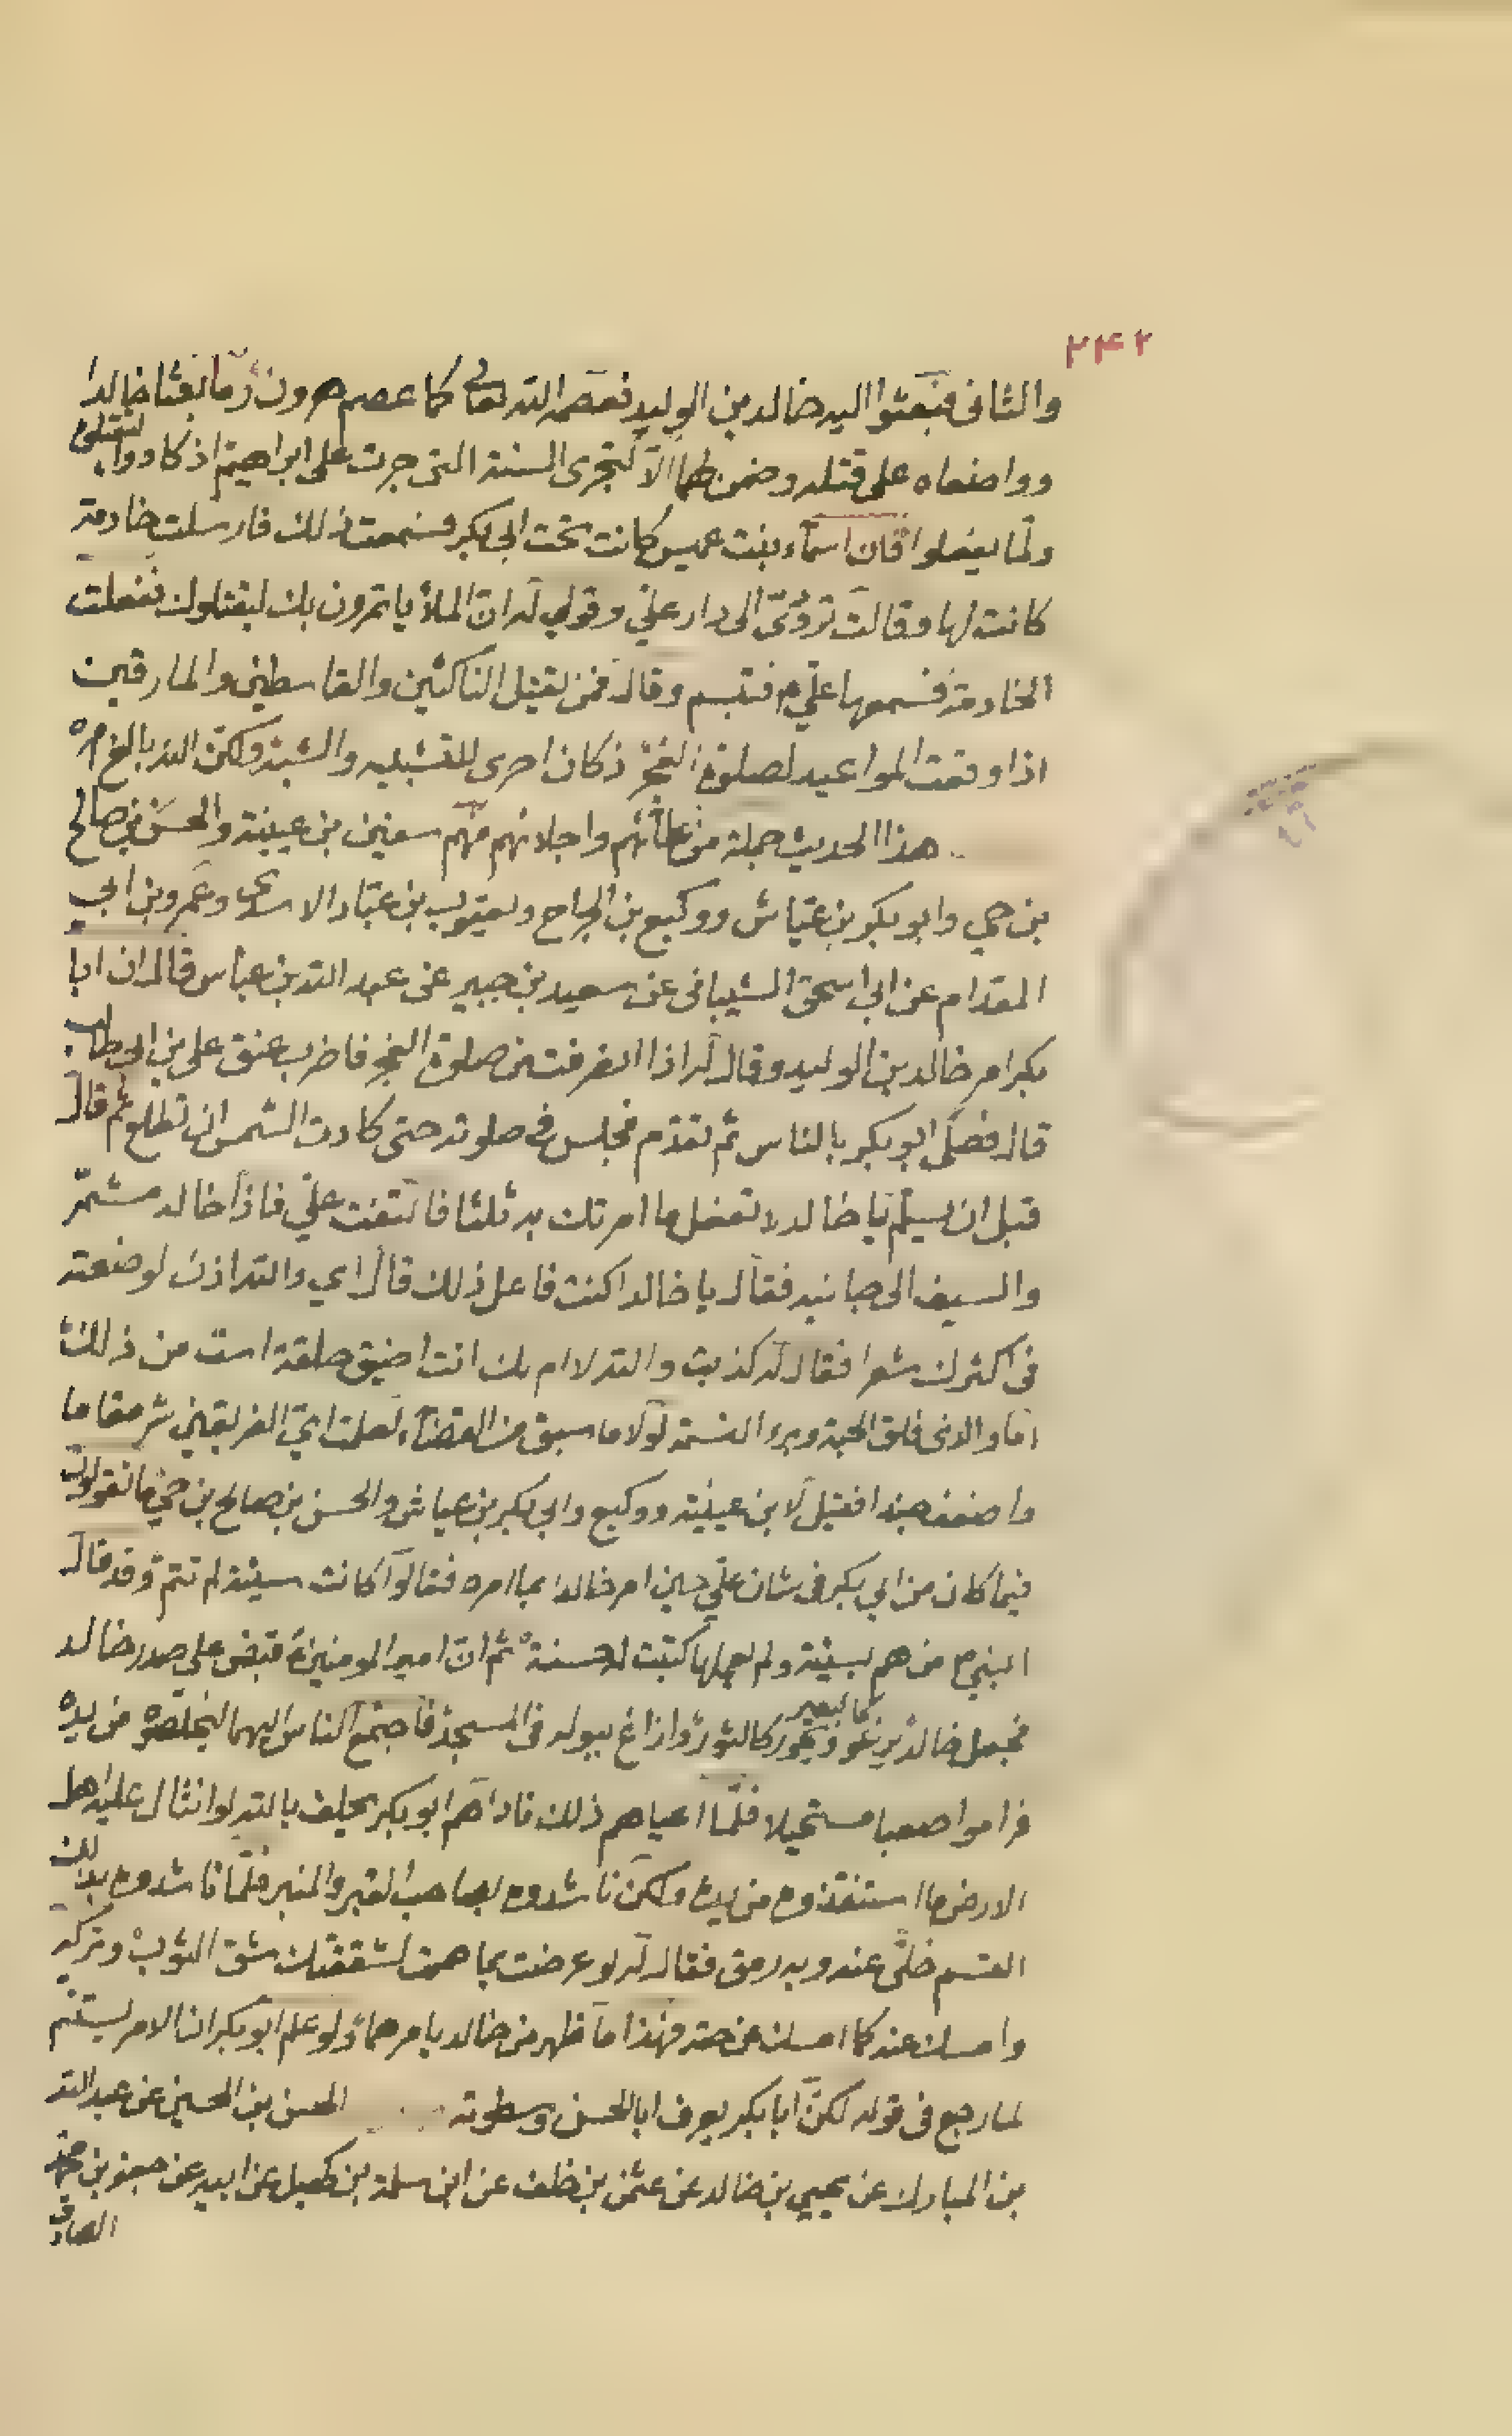 ۲۴۲
والثانى فبعثوا اليه خالد بن الوليد فعصمه الله تعالى كما عصم هرون لمّا بعثا خالدا
وواضعاه على قتله وضمن لهما الّا لتجرى السنة التى جرت على ابراهيم اذ كادوا ليقتلوه
ولمّا يفعلوا فان اسمآء بنت عميس كانت تحت ابى بكر فسمعت ذلك فارسلت خادمة
كانت لها وقالت تردّى الى دار علي وقولي له ان الملأ ياتمرون بك ليقتلوك ففعلت
الخادمة فسمعها علي ع فتبسم وقال فمن يقتل الناكثين والقاسطين والمارقين
اذا وقعت المواعيد لصلوة الفجر اذ كان احرى للتشبيه والشبه ولكن الله بالغ امره
هذا الحديث جملة من علمائهم واجلائهم منهم سفين بن عيينة والحسن بن صالح
بن حي وابو بكر بن عيّاش ووكيع بن الجراح ويعقوب بن عبّاد الاسدى وعمرو بن ابي
المقدام عن ابى اسحق الشيبانى عن سعيد بن جبير عن عبد الله بن عباس قال ان ابا
بكر امر خالد بن الوليد وقال له اذا انصرفت من صلوة الفجر فاضرب عنق على بن ابيطالب
قال فصلى ابو بكر بالناس ثم تقدّم فجلس فى صلوته حتى كادت الشمس ان تطلع ثم قال
قبل ان يسلم يا خالد لا تفعل ما امرتك به ثلثا فالتفت علي فاذا خالد مشتمّر
والسيف الى جانبه فقال يا خالد اكنت فاعل ذلك قال اي والله اذن لوضعته
فى اكثرك شعرا فقال له كذبت والله لا ام لك انت اضيق حلقة است من ذلك
اما والذى فلق الحبة وبرء النسمة لولا ما سبق من القضآء لعلمت ايّ الفريقين شر مقاما
واضعف جندا فقيل لابن عيينة ووكيع وابي بكر بن عياش والحسن بن صالح بن حي ما تقولون
فيما كان من ابي بكر فى شان علي حين امر خالدا بما امره فقالوا كانت سيئة لم تتمّ وقد قال
النبي ع من هم بسيئة ولم يعملها كتبت له حسنة ثم ان امير المومنين ع قبض على صدر خالد
كالبعير
فجعل خالد يرغو ويخور كالثور وازاغ ببوله فى المسجد فاجتمع الناس اليهما ليخلصوه من يده
فراموا صعبا مستحيلا فلمّا اعياهم ذلك ناداهم ابو بكر يحلف بالله لو انثال عليه اهل
الارض ما استنقذوه من يده ولكن ناشدوه بصاحب القبر والمنبر فلمّا ناشدوه بذلك
القسم خلّى عنه وبه رمق فقال له لو عرضت بما هممت لشققتك شق الثوب وتركه
وامسك عنه كما امسك عن فهذا ما ظهر من خالد بامرهما ولو علم ابو بكر ان الامر ليستتم
لما رجع فى قوله لكنّ ابا بكر يعرف ابا الحسن وسطوته الحسن بن الحسين عن عبد الله
بن المبارك عن يحيى بن خالد عن عثمن بن خلف عن ابن سلمة بن كهيل عن ابيه عن جعفر بن محمد
الصادق